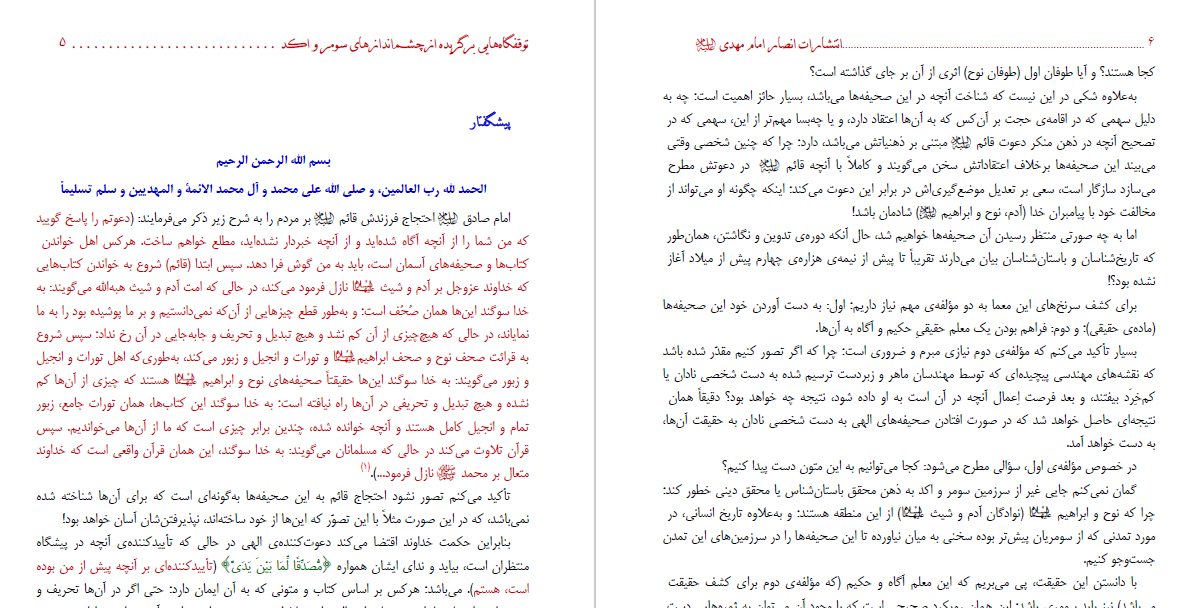 توقفگاه‌هایی برگزیده از چشم‌اندازهای سومر و اکد ............................ ۵
پیشگفتار
بسم الله الرحمن الرحیم
الحمد لله رب العالمین، و صلی الله علی محمد و آل محمد الائمة و المهدیین و سلم تسلیماً
امام صادق احتجاج فرزندش قائم بر مردم را به شرح زیر ذکر می‌فرمایند: (دعوتم را پاسخ گویید
که من شما را از آنچه آگاه شده‌اید و از آنچه خبردار نشده‌اید، مطلع خواهم ساخت. هرکس اهل خواندن
کتاب‌ها و صحیفه‌های آسمان است، باید به من گوش فرا دهد. سپس ابتدا (قائم) شروع به خواندن کتاب‌هایی
که خداوند عزوجل بر آدم و شیث نازل فرمود می‌کند، در حالی که امت آدم و شیث هبه‌الله می‌گویند: به
خدا سوگند این‌ها همان صُحُف است؛ و به‌طور قطع چیزهایی از آن‌که نمی‌دانستیم و بر ما پوشیده بود را به ما
نمایاند، در حالی که هیچ‌چیزی از آن کم نشد و هیچ تبدیل و تحریف و جابه‌جایی در آن رخ نداد؛ سپس شروع
به قرائت صحف نوح و صحف ابراهیم و تورات و انجیل و زبور می‌کند، به‌طوری‌که اهل تورات و انجیل
و زبور می‌گویند: به خدا سوگند این‌ها حقیقتاً صحیفه‌های نوح و ابراهیم هستند که چیزی از آن‌ها کم
نشده و هیچ تبدیل و تحریفی در آن‌ها راه نیافته است؛ به خدا سوگند این کتاب‌ها، همان تورات جامع، زبور
تمام و انجیل کامل هستند و آنچه خوانده شده، چندین برابر چیزی است که ما از آن‌ها می‌خواندیم. سپس
قرآن تلاوت می‌کند و در حالی که مسلمانان می‌گویند: به خدا سوگند، این همان قرآن واقعی است که خداوند
متعال بر محمد ﷺ نازل فرمود...).(۱)
تأکید می‌کنم تصور نشود احتجاج قائم به این صحیفه‌ها به‌گونه‌ای است که برای آن‌ها شناخته شده
نمی‌باشد، که در این صورت مثلاً با این تصوّر که این‌ها از خود ساخته‌اند، نپذیرفتن‌شان آسان خواهد بود!
بنابراین حکمت خداوند اقتضا می‌کند دعوت‌کننده‌ی الهی در حالی که تأییدکننده‌ی آنچه در پیشگاه
منتظران است، بیاید و ندای ایشان همواره ﴿مُصَدِّقًا لِّمَا بَیْنَ یَدَیَّ﴾ (تأییدکننده‌ای بر آنچه پیش از من بوده
است، هستم). می‌باشد؛ هرکس بر اساس کتاب و متونی که به آن ایمان دارد؛ حتی اگر در آن‌ها تحریف و
۶ ............................ انتشارات انصار امام مهدی
کجا هستند؟ و آیا طوفان اول (طوفان نوح) اثری از آن بر جای گذاشته است؟
به‌علاوه شکی در این نیست که شناخت آنچه در این صحیفه‌ها می‌باشد، بسیار حائز اهمیت است: چه به
دلیل سهمی که در اقامه‌ی حجت بر آن‌کس که به آن‌ها اعتقاد دارد، و یا چه‌بسا مهم‌تر از این، سهمی که در
تصحیح آنچه در ذهن منکر دعوت قائم مبتنی بر ذهنیاتش می‌باشد، دارد؛ چرا که چنین شخصی وقتی
می‌بیند این صحیفه‌ها برخلاف اعتقاداتش سخن می‌گویند و کاملاً با آنچه قائم در دعوتش مطرح
می‌سازد سازگار است، سعی بر تعدیل موضع‌گیری‌اش در برابر این دعوت می‌کند: اینکه چگونه او می‌تواند از
مخالفت خود با پیامبران خدا (آدم، نوح و ابراهیم) شادمان باشد!
اما به چه صورتی منتظر رسیدن آن صحیفه‌ها خواهیم شد، حال آنکه دوره‌ی تدوین و نگاشتن، همان‌طور
که تاریخ‌شناسان و باستان‌شناسان بیان می‌دارند تقریباً تا پیش از نیمه‌ی هزاره‌ی چهارم پیش از میلاد آغاز
نشده بود؟!
برای کشف سرنخ‌های این معما به دو مؤلفه‌ی مهم نیاز داریم: اول: به دست آوردن خود این صحیفه‌ها
(ماده‌ی حقیقی)؛ و دوم: فراهم بودن یک معلم حقیقیِ حکیم و آگاه به آن‌ها.
بسیار تأکید می‌کنم که مؤلفه‌ی دوم نیازی مبرم و ضروری است: چرا که اگر تصور کنیم مقدّر شده باشد
که نقشه‌های مهندسی پیچیده‌ای که توسط مهندسان ماهر و زبردست ترسیم شده به دست شخصی نادان یا
کم‌خِرَد بیفتند، و بعد فرصت اِعمال آنچه در آن است به او داده شود، نتیجه چه خواهد بود؟ دقیقاً همان
نتیجه‌ای حاصل خواهد شد که در صورت افتادن صحیفه‌های الهی به دست شخصی نادان به حقیقت آن‌ها،
به دست خواهد آمد.
در خصوص مؤلفه‌ی اول، سؤالی مطرح می‌شود: کجا می‌توانیم به این متون دست پیدا کنیم؟
گمان نمی‌کنم جایی غیر از سرزمین سومر و اکد به ذهن محقق باستان‌شناس یا محقق دینی خطور کند؛
چرا که نوح و ابراهیم (نوادگان آدم و شیث) از این منطقه هستند؛ و به‌علاوه تاریخ انسانی، در
مورد تمدنی که از سومریان پیش‌تر بوده سخنی به میان نیاورده تا این صحیفه‌ها را در سرزمین‌های این تمدن
جست‌وجو کنیم.
با دانستن این حقیقت، پی می‌بریم که این معلم آگاه و حکیم (که مؤلفه‌ی دوم برای کشف حقیقت